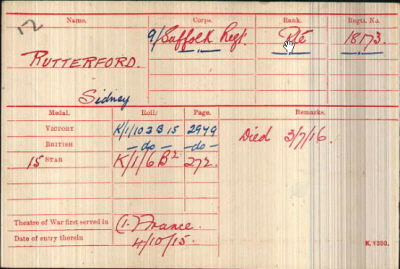 12
Name. Corps. Rank. Regtl. No.
9/Suffolk Regt. Pte 18173.
RUTTERFORD.
Sidney
Medal. Roll. Page. Remarks.
VICTORY K/1/103 B 15 2949
BRITISH -do- -do-
15 STAR K/1/6 B² 272.
Died 3/7/16.
Theatre of War first served in (1. France.
Date of entry therein 4/10/15.
K. 1380.